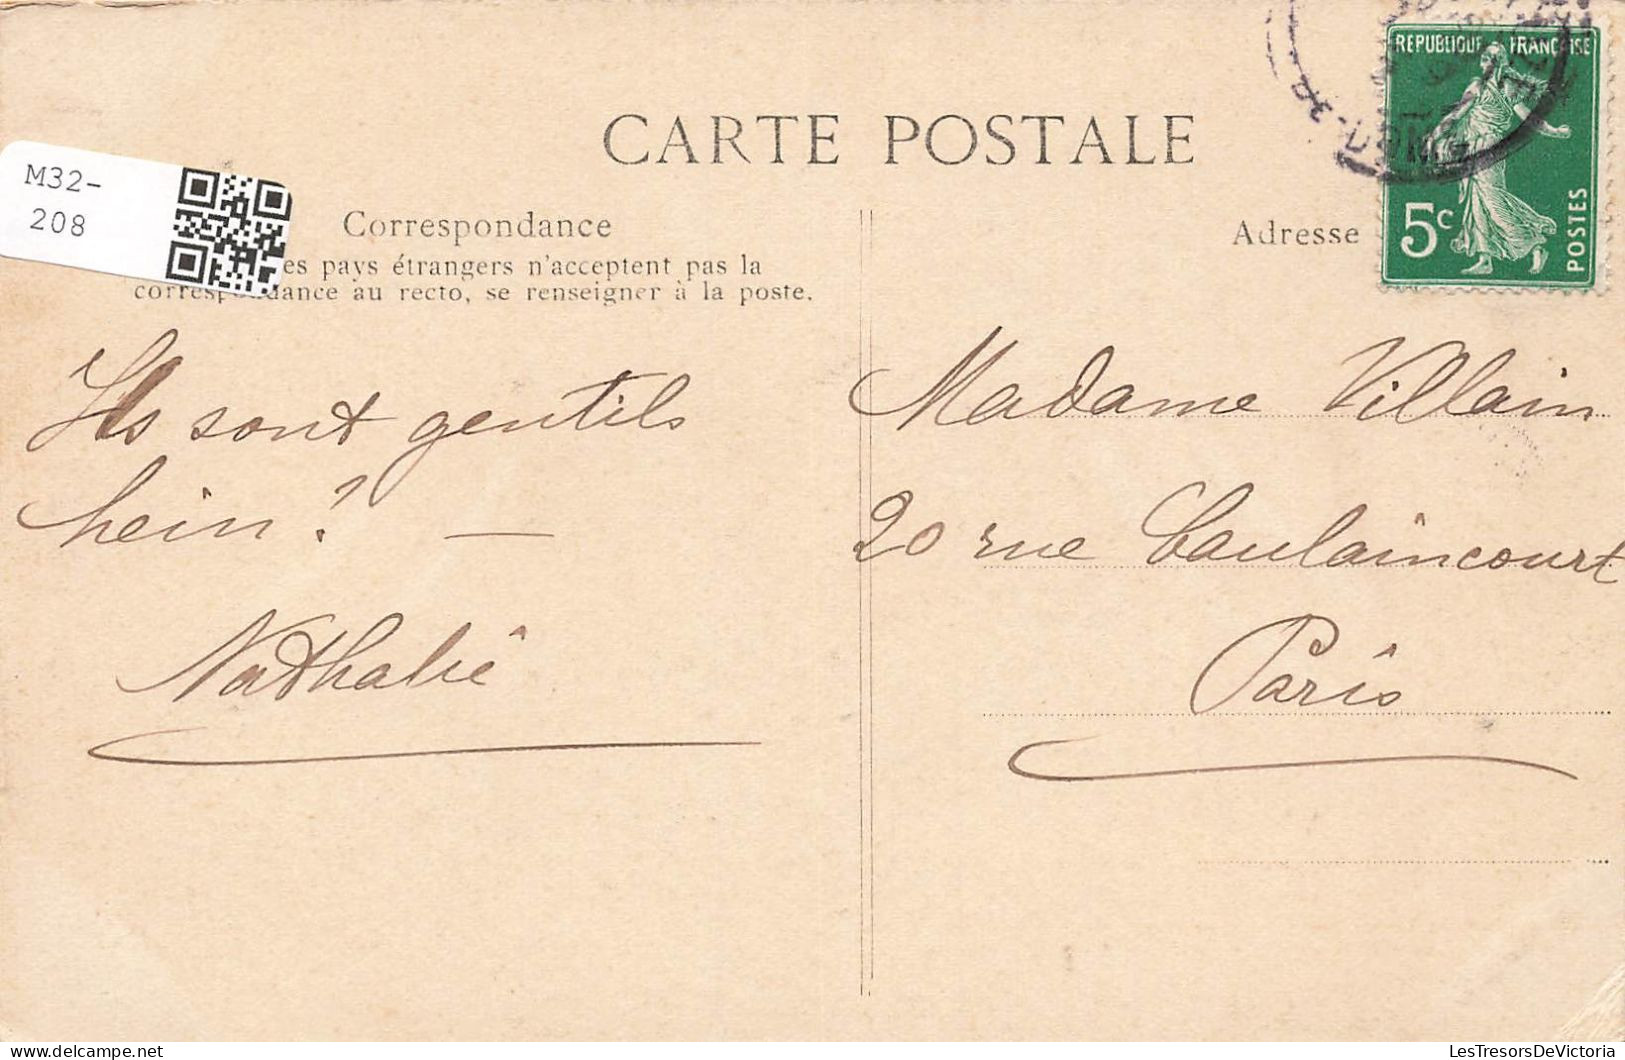 CARTE POSTALE
M32-
208
Correspondance
es pays étrangers n'acceptent pas la
correspondance au recto, se renseigner à la poste.
Ils sont gentils
hein ? —
Nathalie
Adresse
REPUBLIQUE FRANÇAISE
5c
POSTES
Madame Villain
20 rue Caulaincourt
Paris
LesTresorsDeVictoria